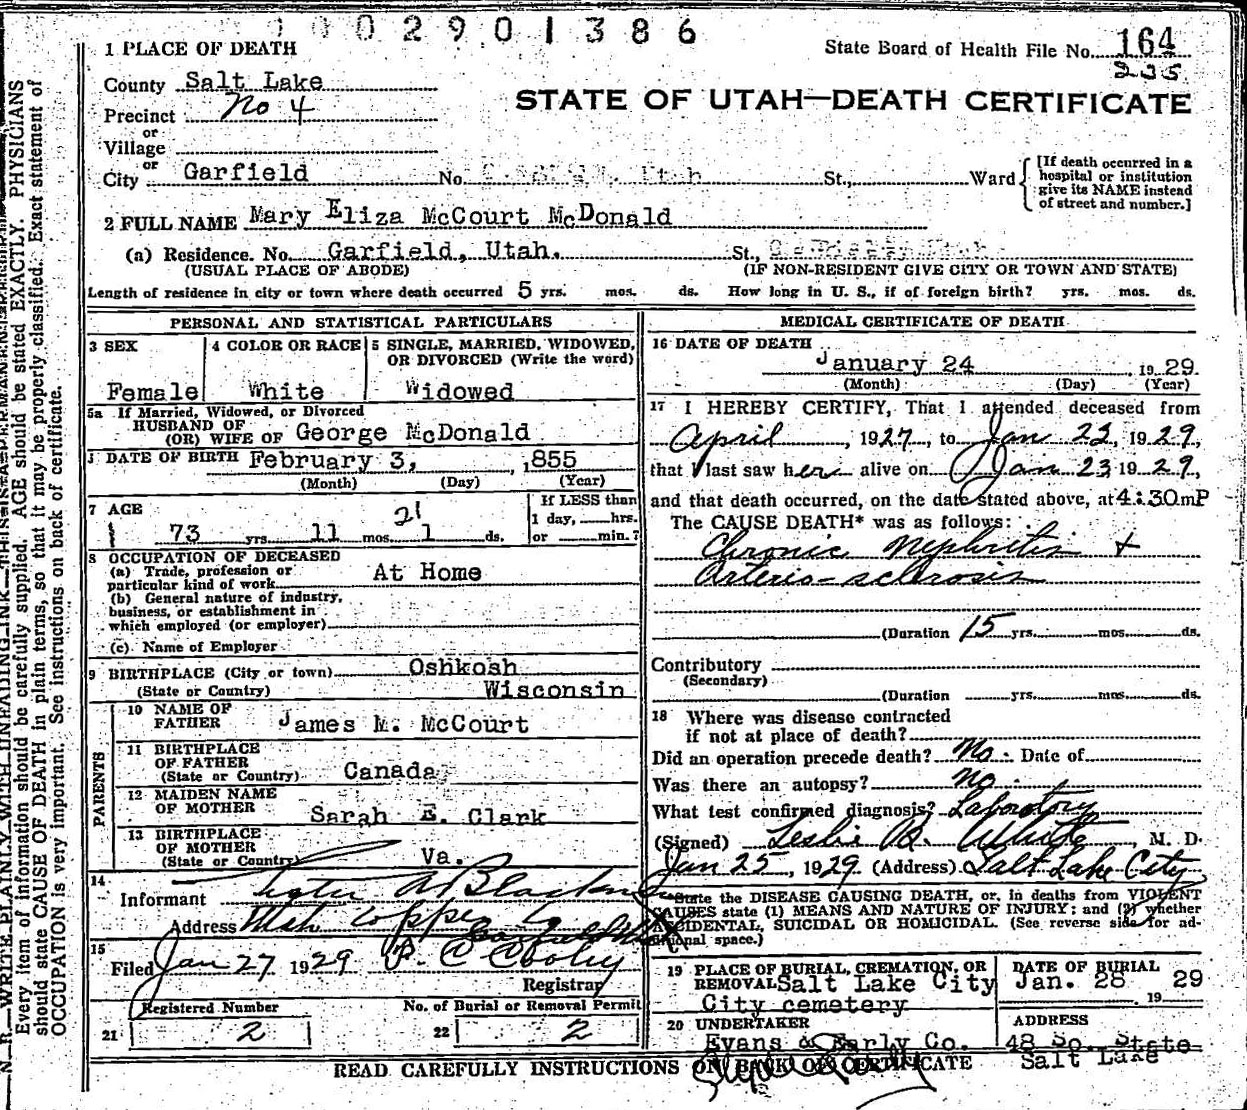 1002901386
1 PLACE OF DEATH
State Board of Health File No. 164
235
County Salt Lake
STATE OF UTAH—DEATH CERTIFICATE
Precinct No 4
or
Village
or
City Garfield No. Utah St., Ward
[If death occurred in a hospital or institution give its NAME instead of street and number.]
2 FULL NAME Mary Eliza McCourt McDonald
(a) Residence. No. Garfield, Utah. St.,
(USUAL PLACE OF ABODE) (IF NON-RESIDENT GIVE CITY OR TOWN AND STATE)
Length of residence in city or town where death occurred 5 yrs. mos. ds. How long in U. S., if of foreign birth? yrs. mos. ds.
PERSONAL AND STATISTICAL PARTICULARS
3 SEX
Female
4 COLOR OR RACE
White
5 SINGLE, MARRIED, WIDOWED, OR DIVORCED (Write the word)
Widowed
5a If Married, Widowed, or Divorced
HUSBAND OF
(OR) WIFE OF George McDonald
DATE OF BIRTH February 3, , 1855
(Month) (Day) (Year)
7 AGE
21
73 yrs. 11 mos. 1 ds.
If LESS than
1 day, hrs.
or min.?
8 OCCUPATION OF DECEASED
(a) Trade, profession or
particular kind of work At Home
(b) General nature of industry,
business, or establishment in
which employed (or employer)
(c) Name of Employer
9 BIRTHPLACE (City or town) Oshkosh
(State or Country) Wisconsin
PARENTS
10 NAME OF
FATHER James M. McCourt
11 BIRTHPLACE
OF FATHER
(State or Country) Canada
12 MAIDEN NAME
OF MOTHER Sarah E. Clark
13 BIRTHPLACE
OF MOTHER
(State or Country) Va.
14
Informant
Address Utah Copper Co
15
Filed Jan 27 1929 P. C Cooley
Registrar
Registered Number
21 2
No. of Burial or Removal Permit
22 2
MEDICAL CERTIFICATE OF DEATH
16 DATE OF DEATH
January 24 , 1929.
(Month) (Day) (Year)
17 I HEREBY CERTIFY, That I attended deceased from
April , 1927, to Jan 23, 1929,
that I last saw her alive on Jan 23 1929,
and that death occurred, on the date stated above, at 4:30 m P
The CAUSE DEATH* was as follows:
Chronic Nephritis +
Arterio-sclerosis
(Duration 15 yrs. mos. ds.
Contributory
(Secondary)
(Duration yrs. mos. ds.
18 Where was disease contracted
if not at place of death?
Did an operation precede death? No. Date of
Was there an autopsy? no.
What test confirmed diagnosis? Laboratory
(Signed) Leslie B. White, M. D.
Jan 25, 1929 (Address) Salt Lake City
State the DISEASE CAUSING DEATH, or, in deaths from VIOLENT
CAUSES state (1) MEANS AND NATURE OF INJURY; and (2) whether
ACCIDENTAL, SUICIDAL OR HOMICIDAL. (See reverse side for ad-
ditional space.)
19 PLACE OF BURIAL, CREMATION, OR
REMOVAL Salt Lake City
City cemetery
DATE OF BURIAL
Jan. 28 1929
20 UNDERTAKER
Evans & Early Co.
ADDRESS
48 So. State
Salt Lake
READ CAREFULLY INSTRUCTIONS ON BACK OF CERTIFICATE
N. B.—WRITE PLAINLY WITH UNFADING INK—THIS IS A PERMANENT RECORD
Every item of information should be carefully supplied. AGE should be stated EXACTLY. PHYSICIANS
should state CAUSE OF DEATH in plain terms, so that it may be properly classified. Exact statement of
OCCUPATION is very important. See instructions on back of certificate.